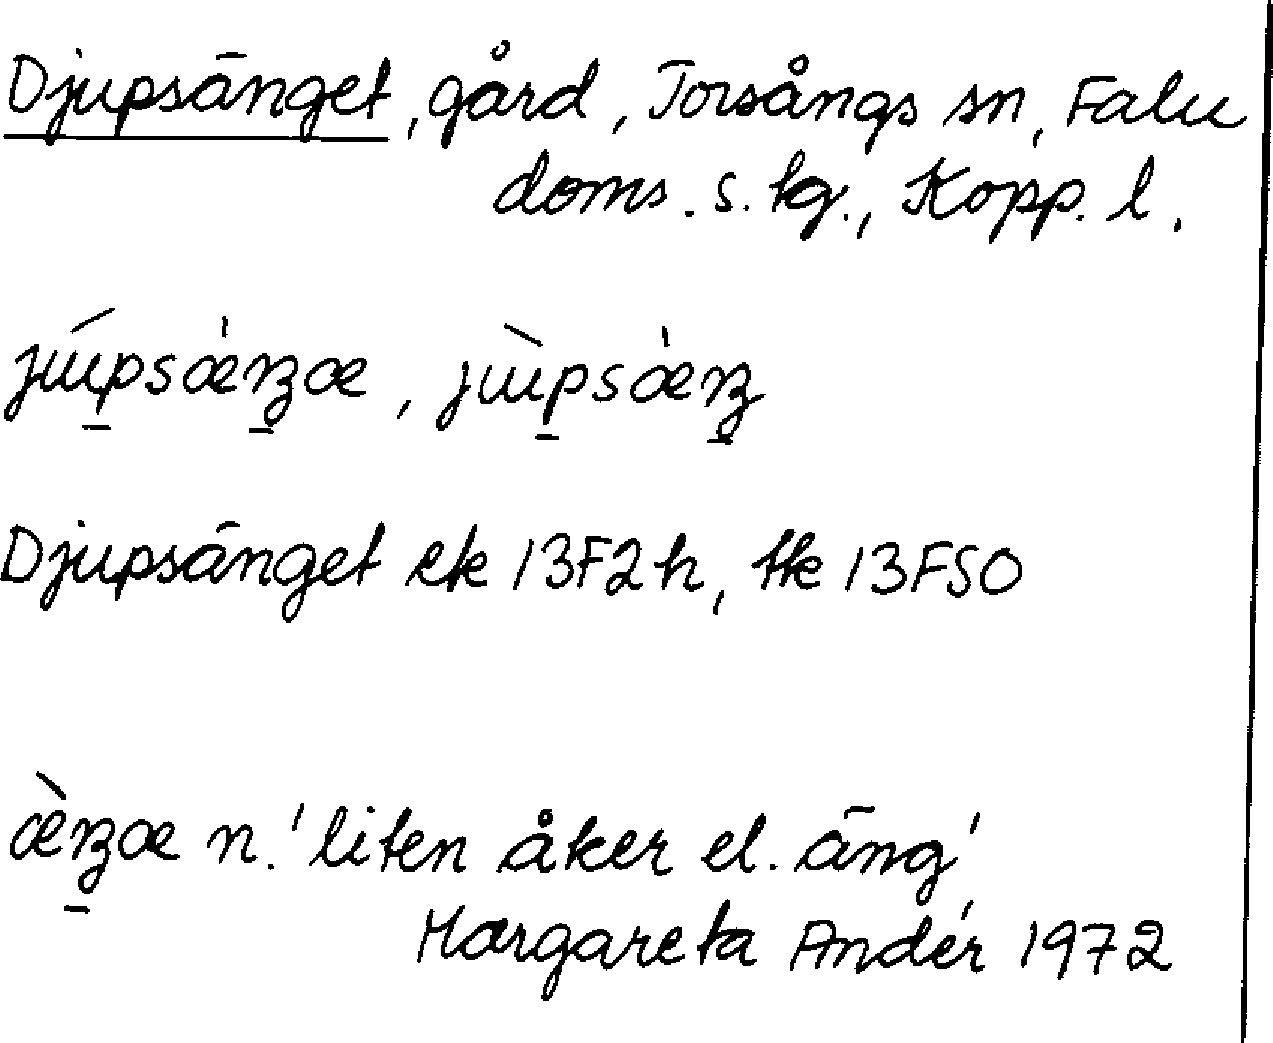 Djupsänget, gård, Torsångs sn, Falu
doms. s. tg., Kopp. l.
júpsæ̀ŋæ, jùpsæ̀ŋ
Djupsänget ek 13F2h, tk 13F50
æ̀ŋæ n. 'liten åker el. äng'
Margareta Andér 1972